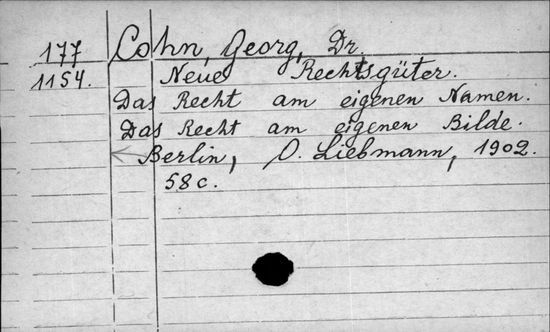 177 Cohn, Georg, Dr.
1154. Neue Rechtsgüter.
Das Recht am eigenen Namen.
Das Recht am eigenen Bilde.
Berlin, O. Liebmann, 1902.
58 c.